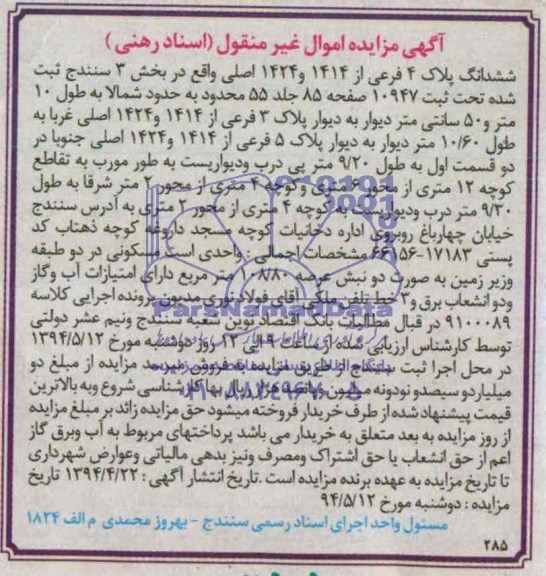 آگهی مزایده اموال غیر منقول (اسناد رهنی)
ششدانگ پلاک ۴ فرعی از ۱۴۱۴ و۱۴۲۴ اصلی واقع در بخش ۳ سنندج ثبت
شده تحت ثبت ۱۰۹۴۷ صفحه ۸۵ جلد ۵۵ محدود به حدود شمالا به طول ۱۰
متر و۵۰ سانتی متر دیوار به دیوار پلاک ۳ فرعی از ۱۴۱۴ و۱۴۲۴ اصلی غربا به
طول ۱۰/۶۰ متر دیوار به دیوار پلاک ۵ فرعی از ۱۴۱۴ و۱۴۲۴ اصلی جنوبا در
دو قسمت اول به طول ۹/۲۰ متر پی درب ودیواریست به طور مورب به تقاطع
کوچه ۱۲ متری از محور ۶ متری و کوچه ۴ متری از محور ۲ متر شرقا به طول
۹/۳۰ متر درب ودیواریست به کوچه ۴ متری از محور ۲ متری به آدرس سنندج
خیابان چهارباغ روبروی اداره دخانیات کوچه مسجد داروغه کوچه ذهتاب کد
پستی ۱۷۱۸۳-۶۶۱۵۶ مشخصات اجمالی : واحدی است مسکونی در دو طبقه
وزیر زمین به صورت دو نبش عرصه ۱۰۸/۸۰ متر مربع دارای امتیازات آب وگاز
ودو انشعاب برق و۳ خط تلفن ملکی آقای فولاد نوری مدیون پرونده اجرایی کلاسه
۹۱۰۰۰۸۹ در قبال مطالبات بانک اقتصاد نوین شعبه سنندج ونیم عشر دولتی
توسط کارشناس ارزیابی شده از ساعت ۹ الی ۱۲ روز دوشنبه مورخ ۱۳۹۴/۵/۱۲
در محل اجرا ثبت سنندج از طریق مزایده به فروش میرسد مزایده از مبلغ دو
میلیارد و سیصدو نودونه میلیون و ریال بها کارشناسی شروع وبه بالاترین
قیمت پیشنهاد شده از طرف خریدار فروخته میشود حق مزایده زائد بر مبلغ مزایده
از روز مزایده به بعد متعلق به خریدار می باشد پرداختهای مربوط به آب وبرق گاز
اعم از حق انشعاب یا حق اشتراک ومصرف ونیز بدهی مالیاتی وعوارض شهرداری
تا تاریخ مزایده به عهده برنده مزایده است .تاریخ انتشار آگهی : ۱۳۹۴/۴/۲۲ تاریخ
مزایده : دوشنبه مورخ ۹۴/۵/۱۲
مسئول واحد اجرای اسناد رسمی سنندج - بهروز محمدی م الف ۱۸۲۴
۲۸۵
ParsNamadData